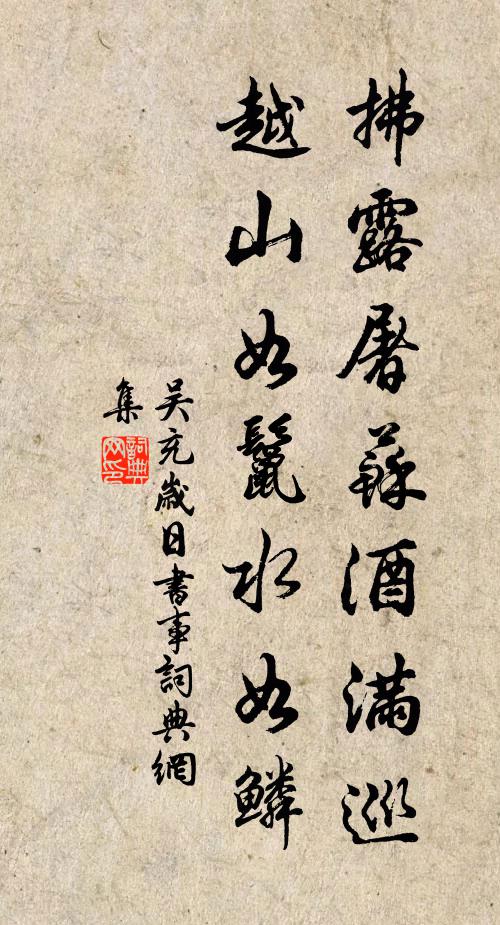 拂露屠蘇酒滿巡
越山如鬣水如鱗
吴充歲日書事詞典網
集
詞典網印